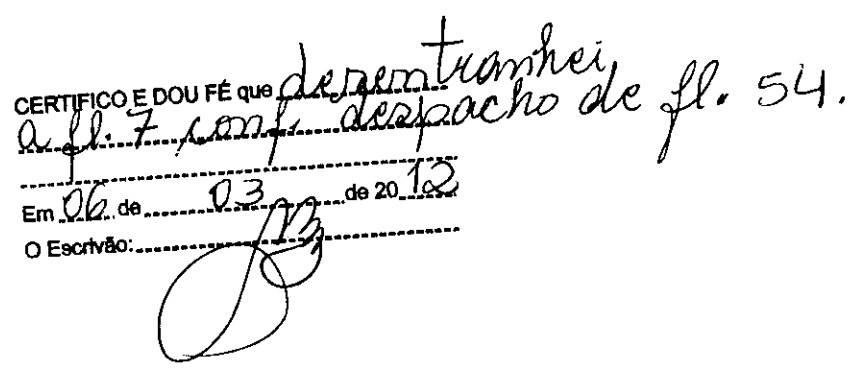 CERTIFICO E DOU FÉ que desentranhei,
a fl. 7 conf. despacho de fl. 54.
Em 06 de 03 de 2012
O Escrivão: